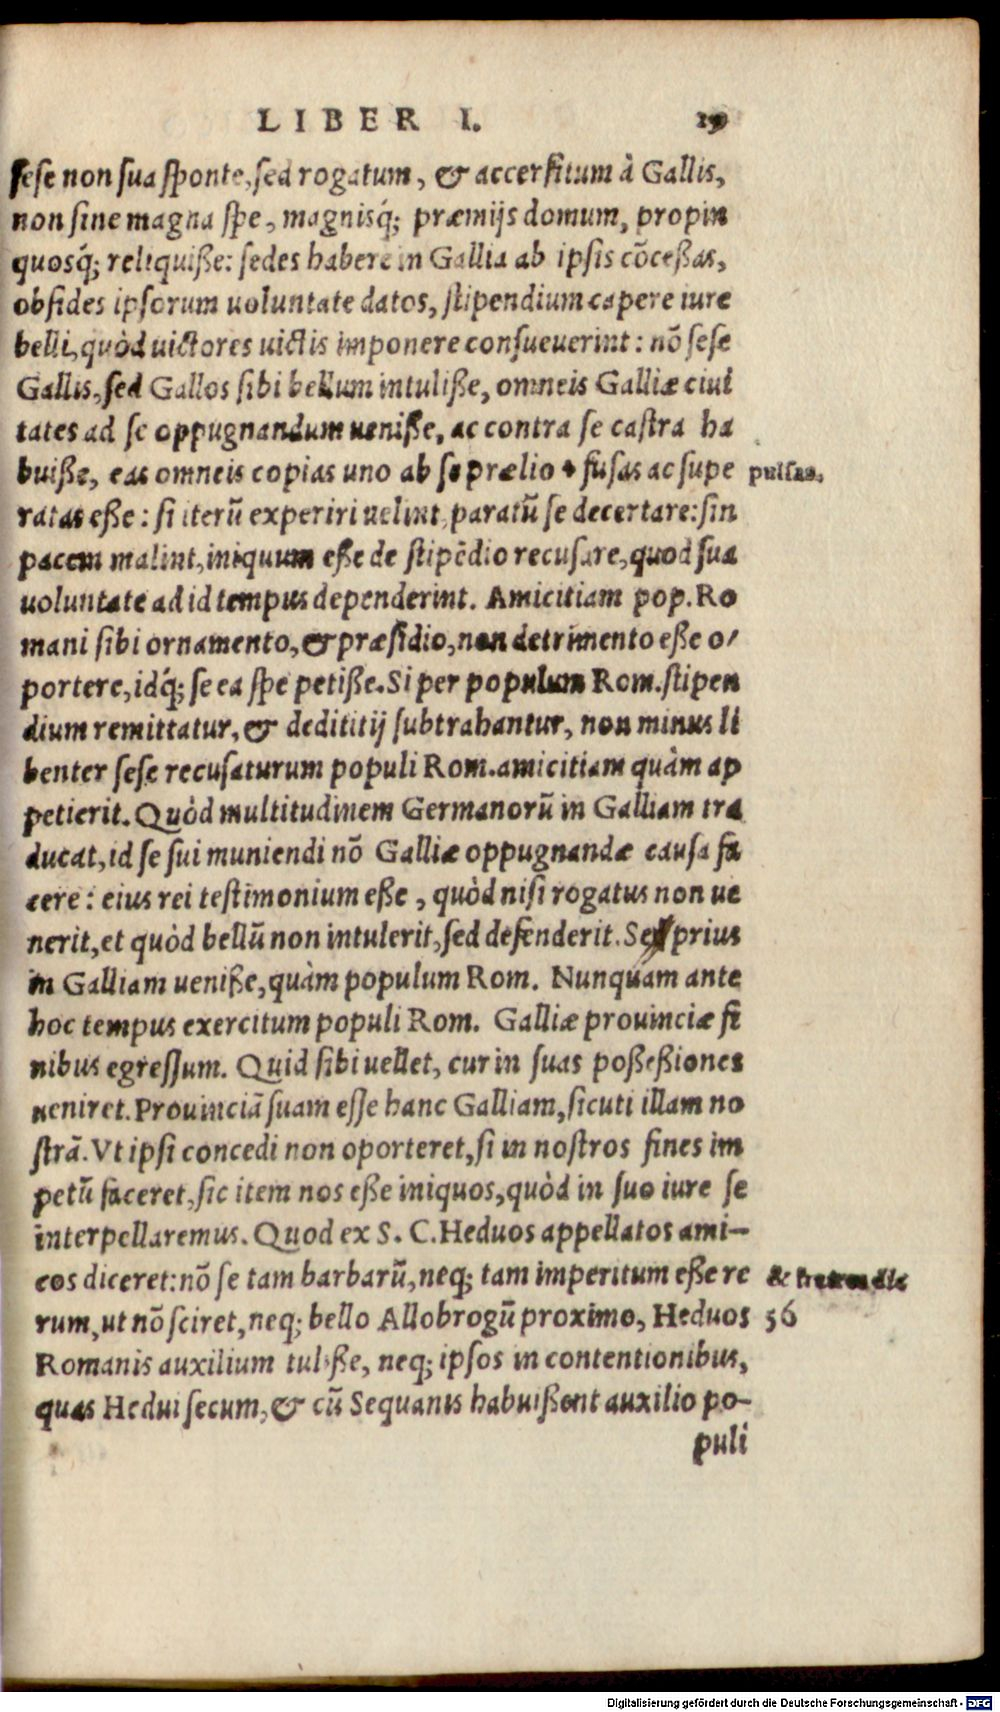 LIBER I. 19
sese non sua sponte, sed rogatum, & accersitum à Gallis,
non sine magna spe, magnisq́; præmijs domum, propin
quosq́; reliquiße: sedes habere in Gallia ab ipsis cōceßas,
obsides ipsorum uoluntate datos, stipendium capere iure
belli, quòd uictores uictis imponere consueuerint: nō sese
Gallis, sed Gallos sibi bellum intuliße, omneis Galliæ ciui
tates ad se oppugnandum ueniße, ac contra se castra ha
buiße, eas omneis copias uno ab se prælio + fusas ac supe
pulsas.
ratas eße: si iterū experiri uelint, paratū se decertare: sin
pacem malint, iniquum eße de stipēdio recusare, quod sua
uoluntate ad id tempus dependerint. Amicitiam pop. Ro
mani sibi ornamento, & præsidio, non detrimento eße o/
portere, idq́; se ea spe petiße. Si per populum Rom. stipen
dium remittatur, & dedititij subtrahantur, non minus li
benter sese recusaturum populi Rom. amicitiam quàm ap
petierit. Quòd multitudinem Germanorū in Galliam tra
ducat, id se sui muniendi nō Galliæ oppugnandæ causa fa
cere: eius rei testimonium eße, quòd nisi rogatus non ue
nerit, et quòd bellū non intulerit, sed defenderit. Se prius
in Galliam ueniße, quàm populum Rom. Nunquam ante
hoc tempus exercitum populi Rom. Galliæ prouinciæ fi
nibus egressum. Quid sibi uellet, cur in suas poßeßiones
ueniret. Prouinciā suam esse hanc Galliam, sicuti illam no
strā. Vt ipsi concedi non oporteret, si in nostros fines im
petū faceret, sic item nos eße iniquos, quòd in suo iure se
interpellaremus. Quod ex S. C. Heduos appellatos ami-
cos diceret: nō se tam barbarū, neq; tam imperitum eße re
&
rum, ut nō sciret, neq; bello Allobrogū proximo, Heduos
56
Romanis auxilium tuliße, neq; ipsos in contentionibus,
quas Hedui secum, & cū Sequanis habuißent auxilio po-
puli
Digitalisierung gefördert durch die Deutsche Forschungsgemeinschaft - DFG